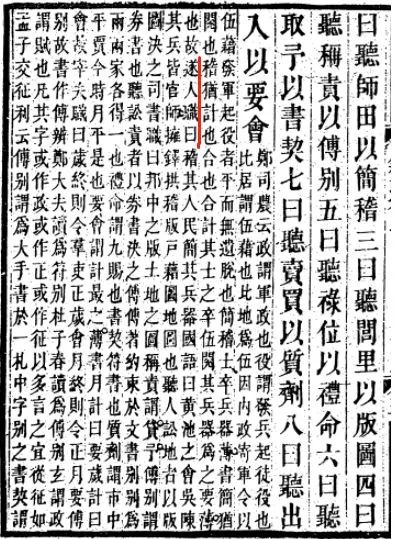 曰聽師田以簡稽三曰聽閭里以版圖四曰
聽稱責以傅別五曰聽祿位以禮命六曰聽
取予以書契七曰聽賣買以質劑八曰聽出
入以要會
鄭司農云政謂軍政也役謂發兵起徒役也
比居謂伍籍也比地爲伍因內政寄軍令以
伍籍發軍起役者平而無遺脫也簡稽士卒兵器薄書簡猶
閱也稽猶計也合也合計其士之卒伍閱其兵器爲之要薄
也故遂人職曰稽其人民簡其兵器國語曰黃池之會吳陳
其兵皆官師擁鐸拱稽版戶籍圖地圖也聽人訟地者以版
圖決之司書職曰邦中之版土地之圖稱責謂貸予傅別謂
券書也聽訟責者以券書決之傅傅著約束於文書別別爲
兩兩家各得一也禮命謂九賜也書契符書也質劑謂市中
平賈今時月平是也要會謂計最之薄書月計曰要歲計曰
會故宰夫職曰歲終則令羣吏正歲會月終則令正月要傅
別故書作傅辨鄭大夫讀爲符別杜子春讀爲傅別玄謂政
謂賦也凡其字或作政或作正或作征以多言之宜從征如
孟子交征利云傅別謂爲大手書於一札中字別之書契謂